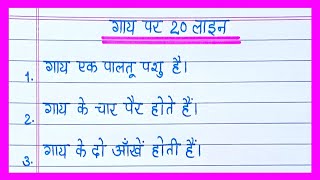 गाय पर 20 लाइन
1. गाय एक पालतू पशु है।
2. गाय के चार पैर होते हैं।
3. गाय के दो आँखें होती हैं।